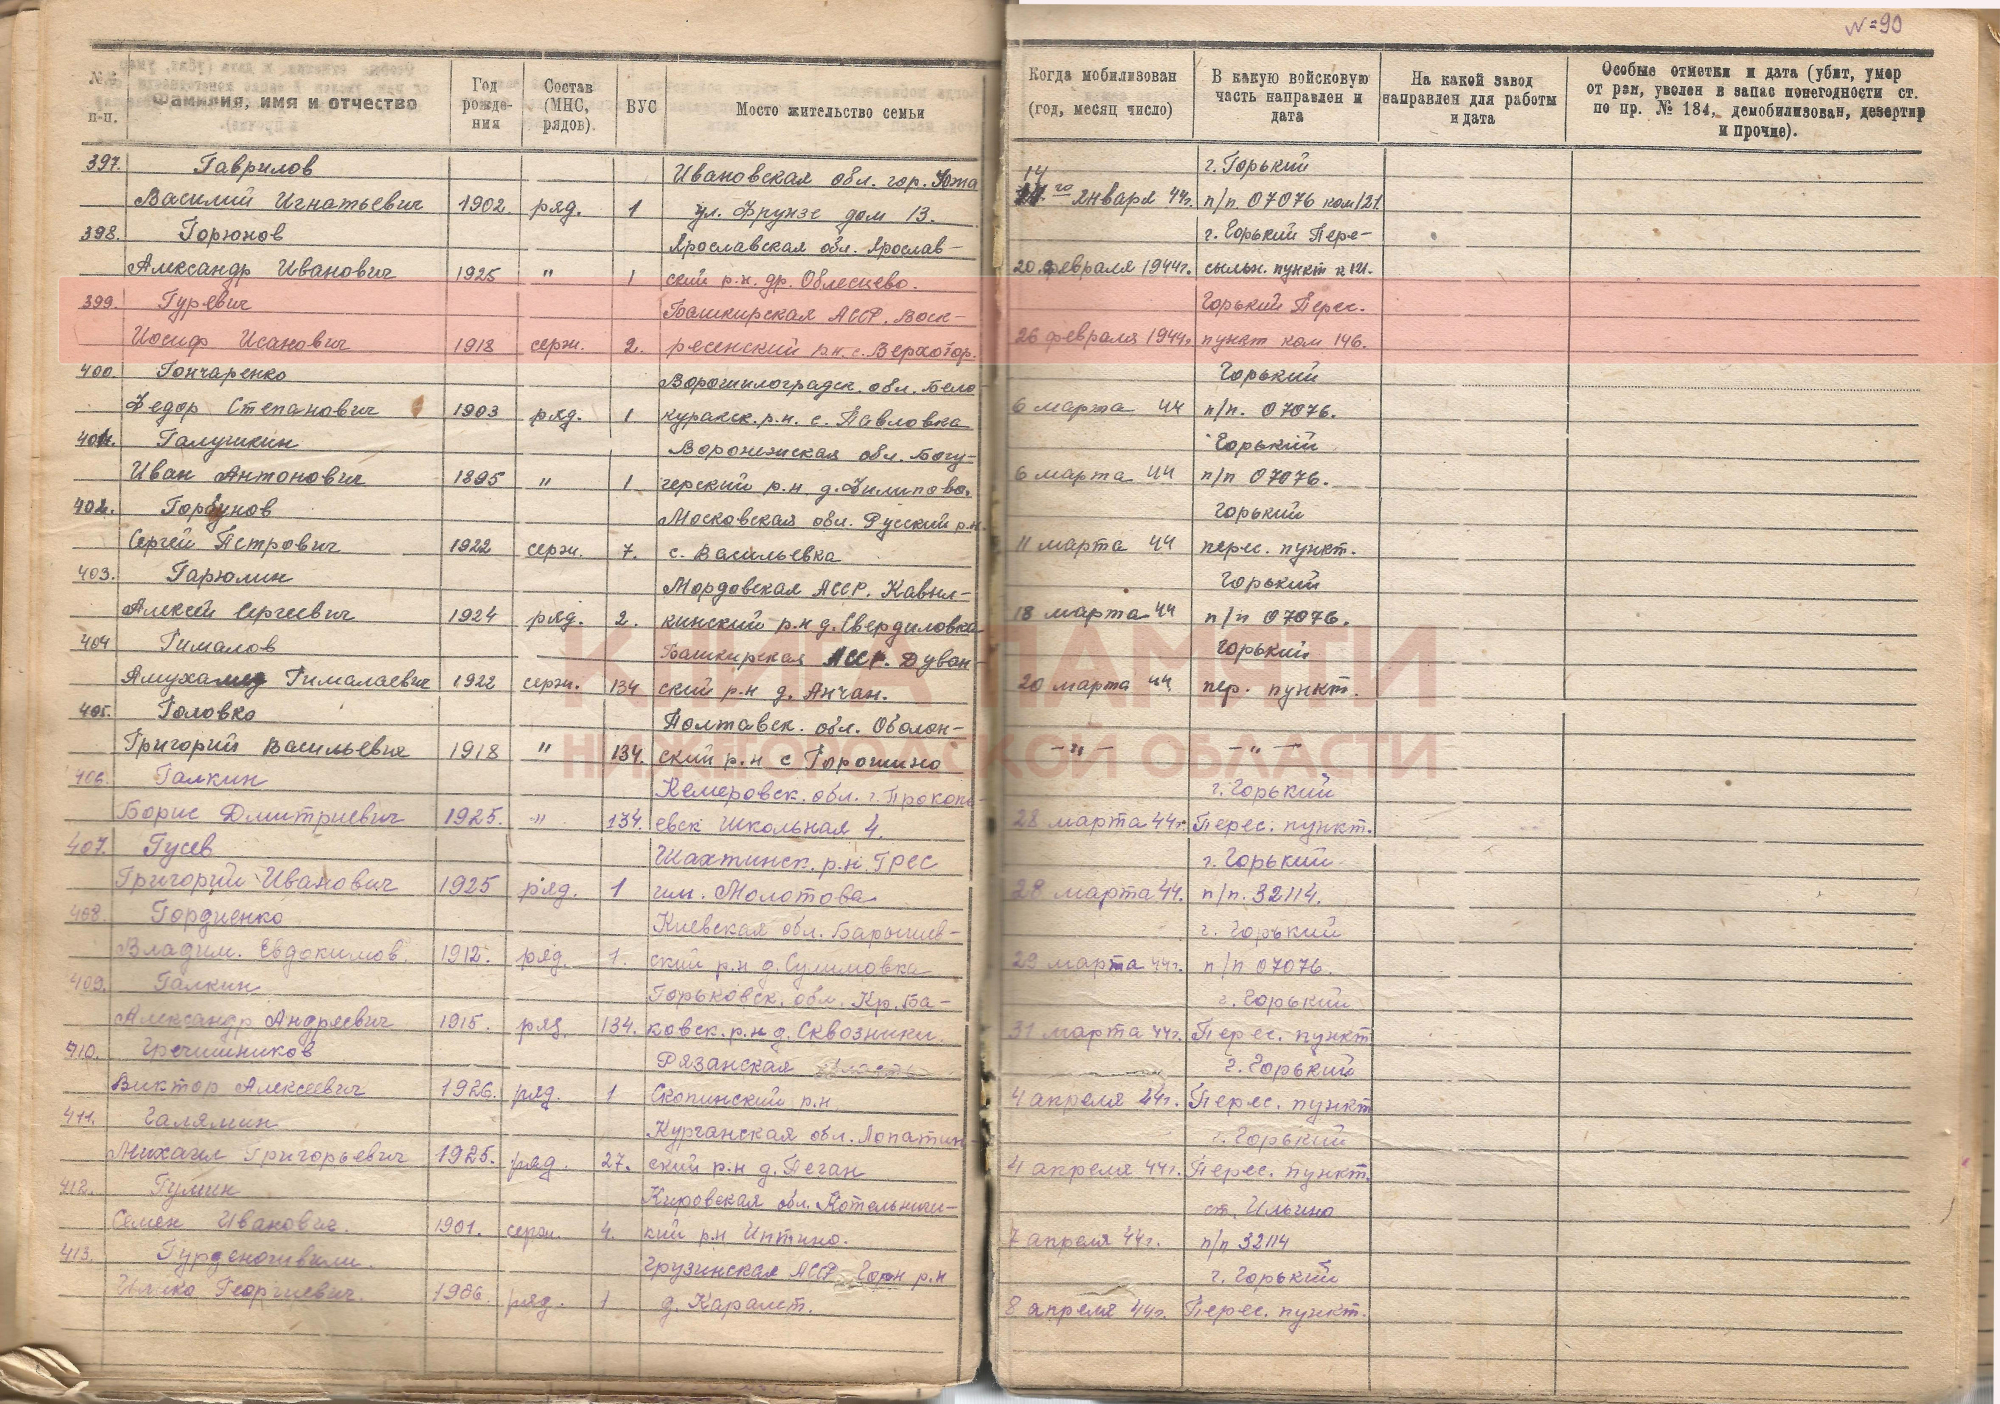 № 90
№№ п-п.
Фамилия, имя и отчество
Год рожде-ния
Состав (МНС, рядов).
ВУС
Мосто жительство семьи
Когда мобилизован (год, месяц число)
В какую войсковую часть направлен и дата
На какой завод направлен для работы и дата
Особые отметки и дата (убит, умор от рэн, уволен в запас понегодности ст. по пр. № 184, демобилизован, дезертир и прочие).
397. Гаврилов Ивановская обл. гор. Южа 14 г. Горький
Василий Игнатьевич 1902. ряд. 1 ул. Фрунзе дом 13. го января 44г. п/п. 07076 ком 121.
398. Горюнов Ярославская обл. Ярослав- г. Горький Пере-
Александр Иванович 1925 " 1 ский р.н. др. Облесцево. 20 февраля 1944г. сыльн. пункт к 121.
399. Гуревич Башкирская АССР. Воск- Горький Перес.
Иосиф Исанович 1918 серж. 2. ресенский р.н. с. Верхотор. 26 февраля 1944г пункт ком 146.
400. Гончаренко Ворошиловградск. обл. Бело- Горький
Федор Степанович 1903 ряд. 1 куракск. р.н. с. Павловка 6 марта 44 п/п. 07076.
401. Галушкин Воронежская обл. Богу- Горький
Иван Антонович 1895 " 1 черский р.н д. Филипово. 6 марта 44 п/п 07076.
402. Горбунов Московская обл. Русский р.н. Горький
Сергей Петрович 1922 серж. 7. с. Васильевка 11 марта 44 перес. пункт.
403. Гарюлин Мордовская АССР. Кавыл- Горький
Алексей Сергеевич 1924 ряд. 2. кинский р.н д. Свердиловка 18 марта 44 п/п 07076.
404 Гималов Башкирская АССР. Дуван- Горький
Амухамед Гималаевич 1922 серж. 134 ский р-н д. Анчан. 20 марта 44 пер. пункт.
405. Головко Полтавск. обл. Оболон-
Григорий Васильевич 1918 " 134. ский р.н с Горошино - " - - " -
406. Галкин Кемеровск. обл. г. Прокопь- г. Горький
Борис Дмитриевич 1925. " 134. евск Школьная 4. 28 марта 44г. Перес. пункт.
407. Гусев Шахтинск. р.н. ГРЕС г. Горький
Григорий Иванович 1925 ряд. 1 им. Молотова 28 марта 44. п/п. 32114.
408. Гордиенко Киевская обл. Барышев- г. Горький
Владим. Евдокимов. 1912. ряд. 1. ский р.н д. Сулимовка 29 марта 44г. п/п 07076.
409. Галкин Горьковск. обл. Кр. Ба- г. Горький
Александр Андреевич 1915. ряд. 134. ковск. р.н д. Сквозники. 31 марта 44г. Перес. пункт
410. Гречишников Рязанская область г. Горький
Виктор Алексеевич 1926. ряд. 1 Скопинский р.н 4 апреля 44г. Перес. пункт
411. Галямин Курганская обл. Лопатин- г. Горький
Михаил Григорьевич 1925. ряд. 27. ский р.н д. Пеган 4 апреля 44г. Перес. пункт.
412. Гулин Кировская обл. Котельнич- ст. Ильино
Семен Иванович. 1901. серж. 4. кий р.н Интино. 7 апреля 44г. п/п 32114
413. Грузинская АССР Горн р.н г. Горький
Илико Георгиевич. 1906. ряд. 1 д. Каралет. 8 апреля 44г. Перес. пункт.
КНИГА ПАМЯТИ
НИЖЕГОРОДСКОЙ ОБЛАСТИ